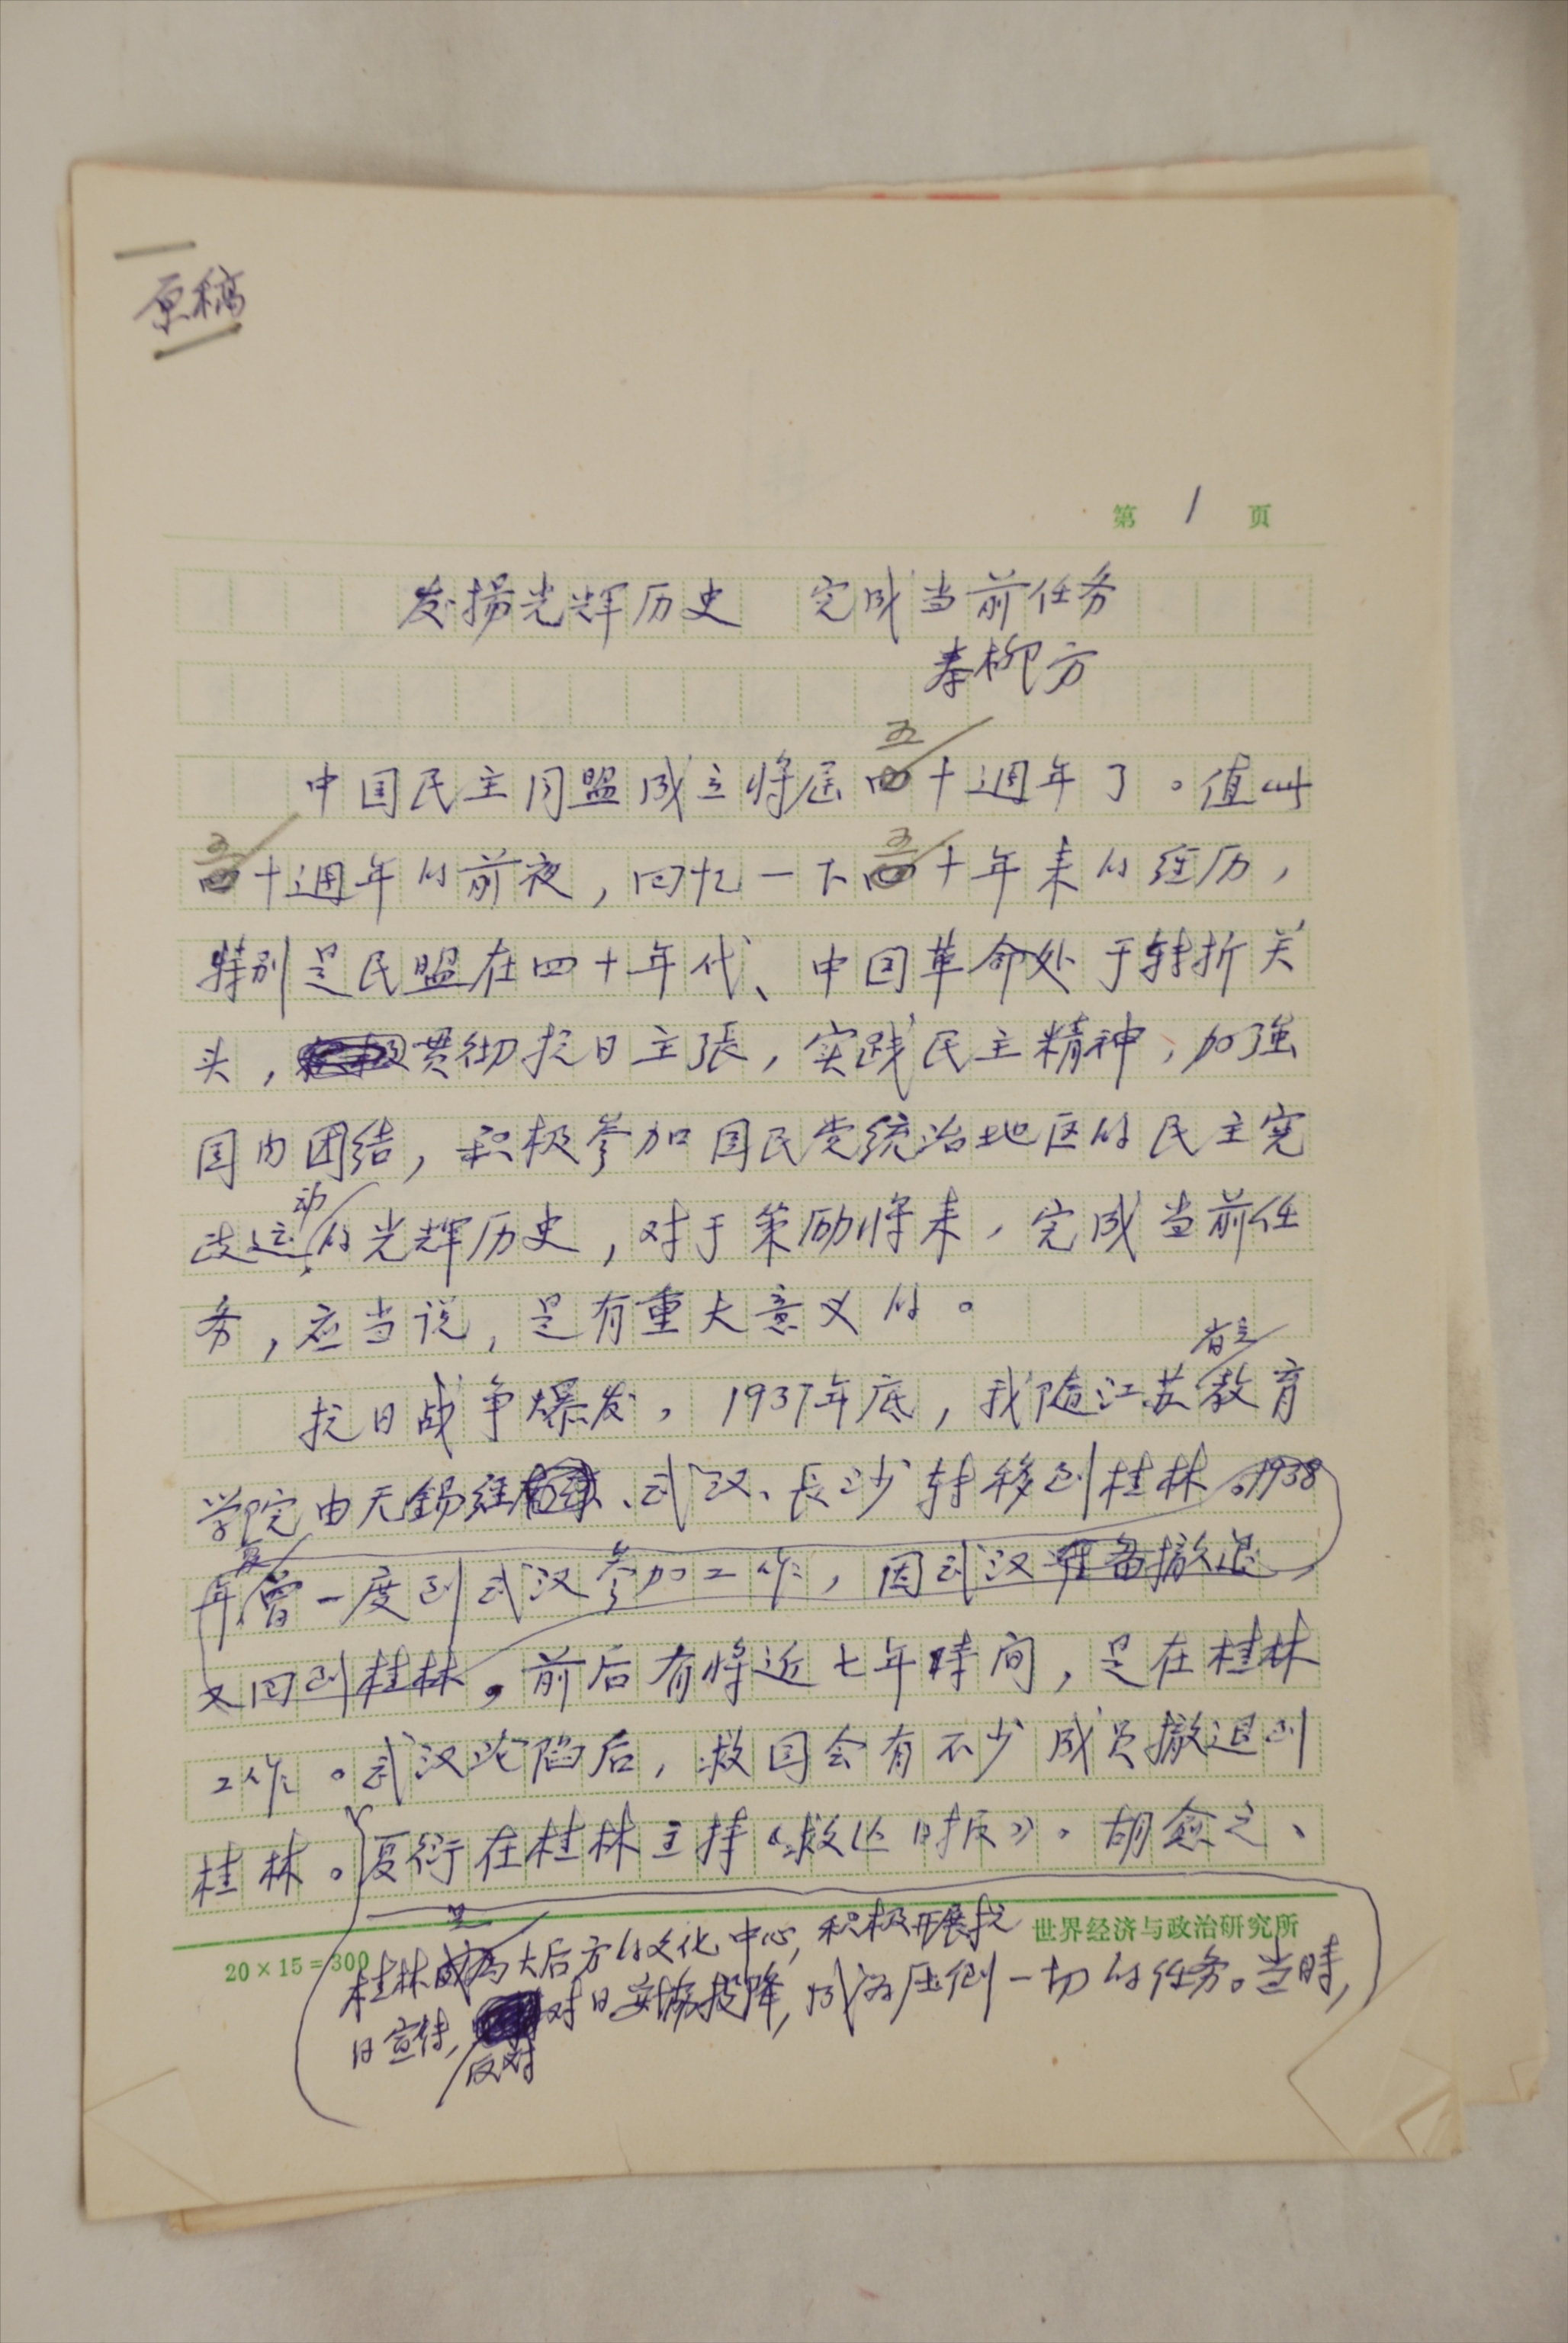 原稿
第 1 页
发扬光辉历史 完成当前任务
秦柳方
中国民主同盟成立将届五十週年了。值此
五十週年的前夜，回忆一下五十年来的经历，
特别是民盟在四十年代、中国革命处于转折关
头，贯彻抗日主張，实践民主精神，加強
国内团结，积极参加国民党统治地区的民主宪
政运动的光辉历史，对于策励将来，完成当前任
务，应当说，是有重大意义的。
抗日战争爆发，1937年底，我随江苏省立教育
学院由无锡经、武汉、长沙转移到桂林。1938
年夏曾一度到武汉参加工作，因武汉准备撤退，
又回到桂林。前后有将近七年時间，是在桂林
工作。武汉沦陷后，救国会有不少成员撤退到
桂林。夏衍在桂林主持《救亡日报》。胡愈之、
世界经济与政治研究所
20×15=300
桂林成为大后方的文化中心，积极开展抗
日宣传，反对对日妥协投降，成为压倒一切的任务。当時，